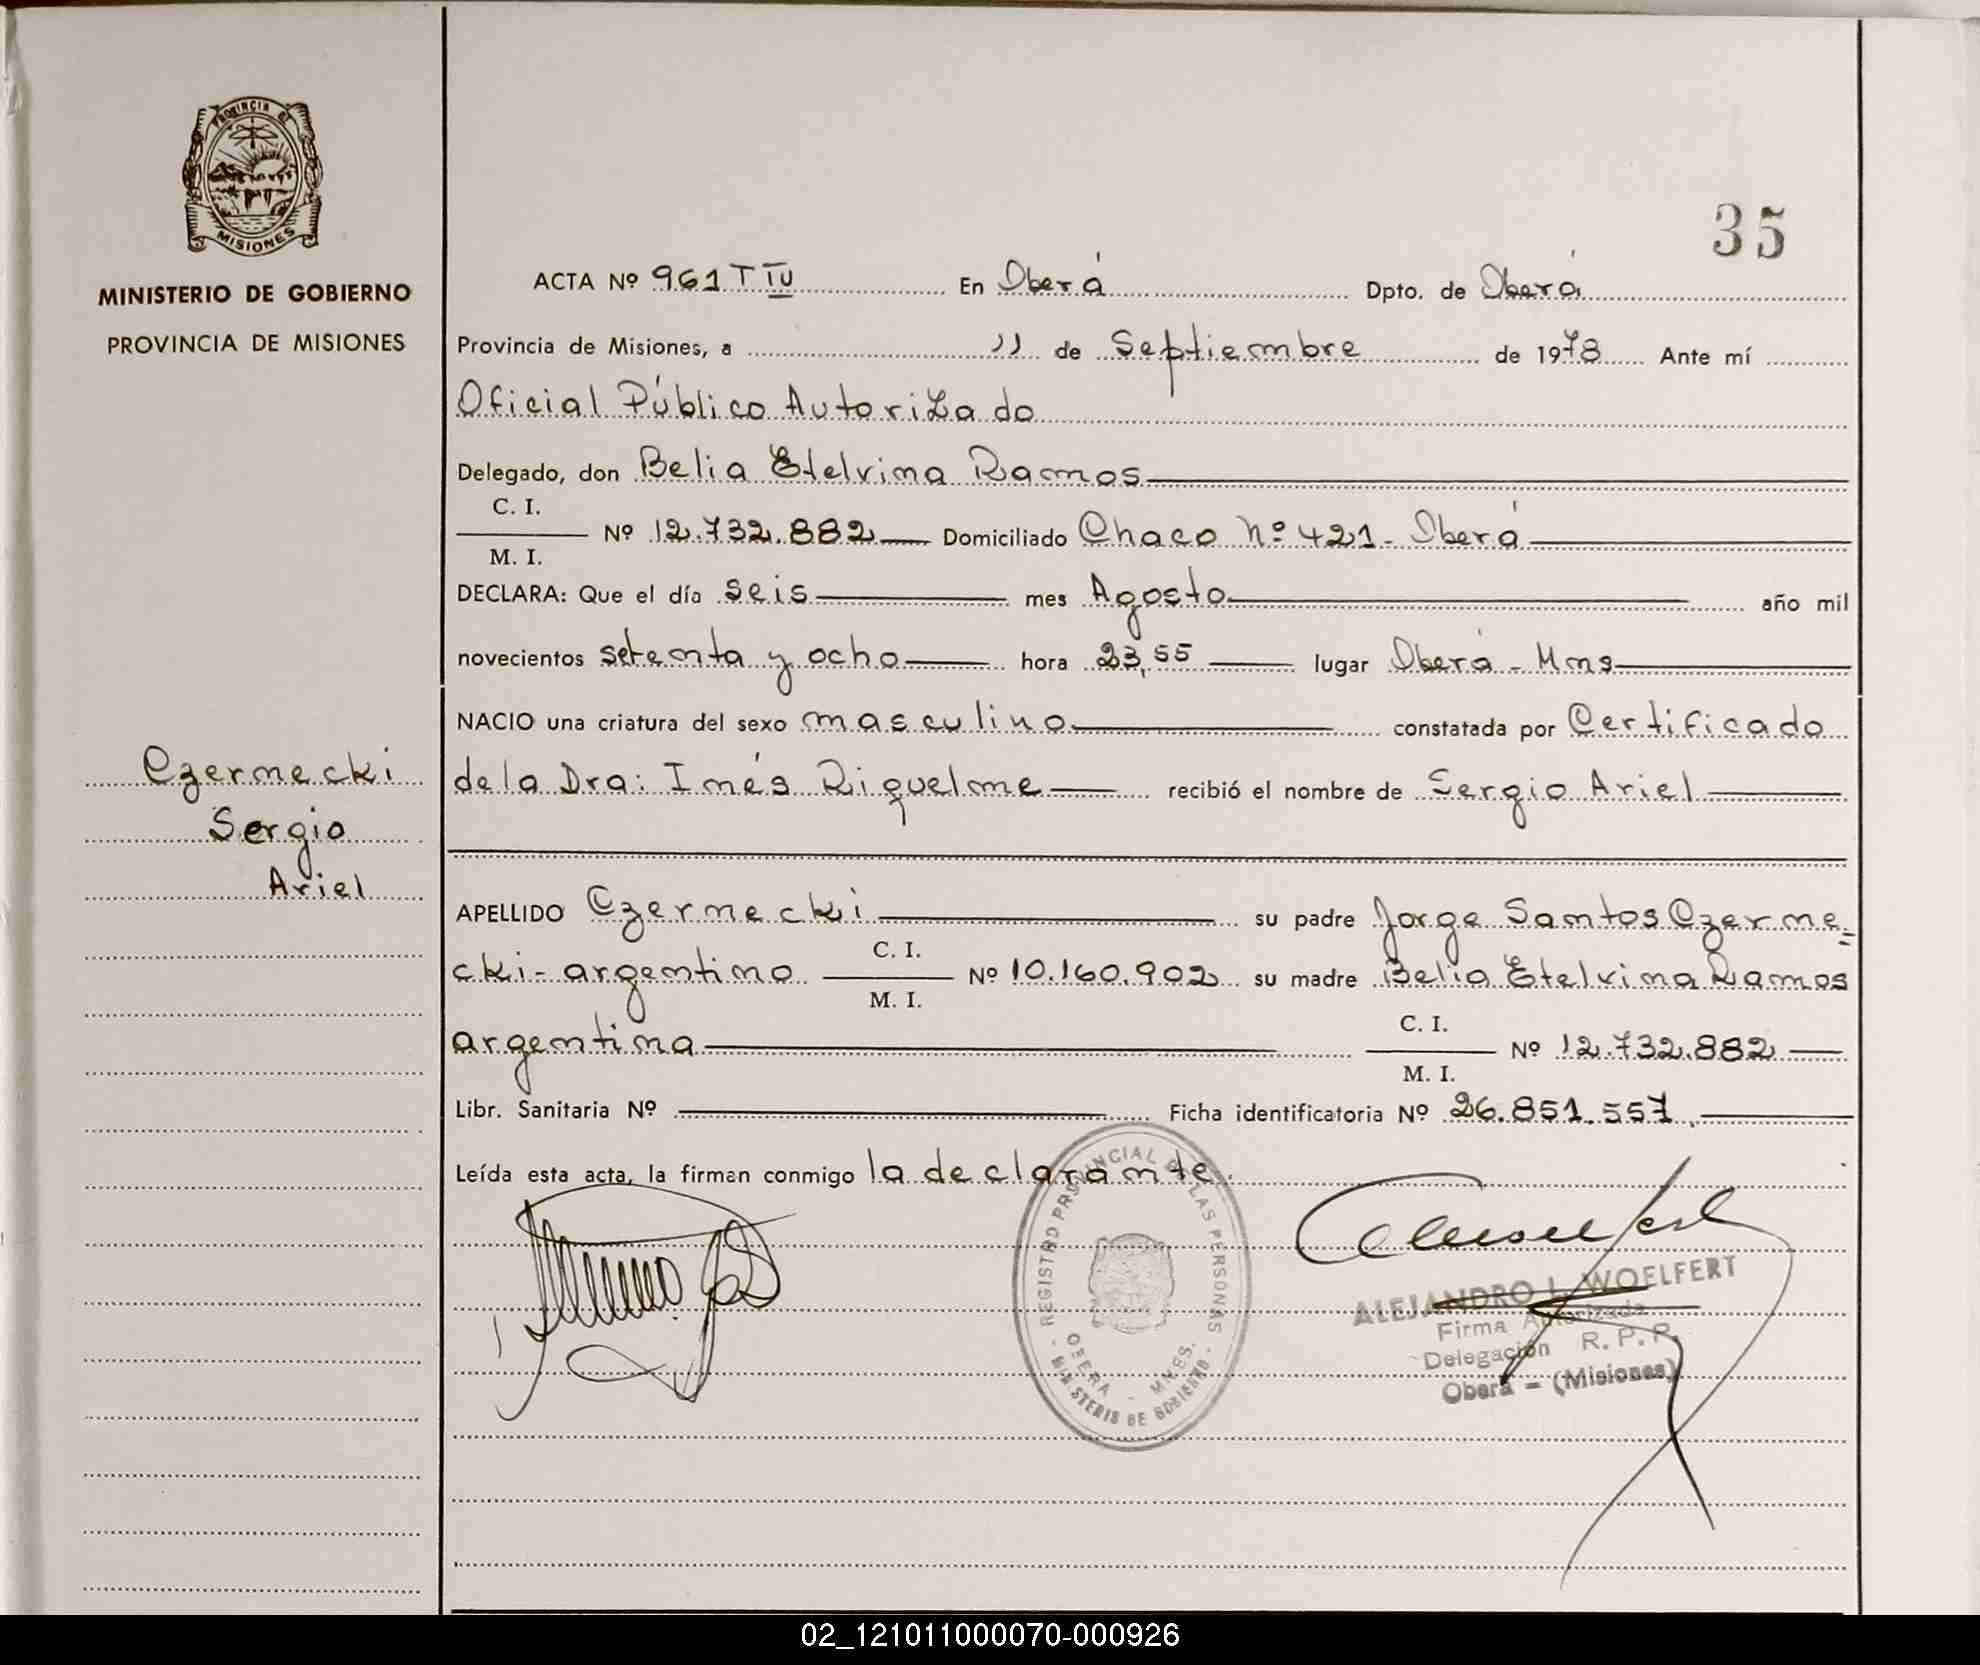 PROVINCIA DE
MISIONES
MINISTERIO DE GOBIERNO
PROVINCIA DE MISIONES
Czernecki
Sergio
Ariel
35
ACTA Nº 961 T IV En Oberá Dpto. de Oberá
Provincia de Misiones, a 11 de Septiembre de 1978 Ante mí
Oficial Público Autorizado
Delegado, don Belia Etelvina Ramos
C. I.
M. I.
Nº 12.732.882 Domiciliado Chaco Nº 421 - Oberá
DECLARA: Que el día seis mes Agosto año mil
novecientos setenta y ocho hora 23,55 lugar Oberá - Mns
NACIO una criatura del sexo masculino constatada por Certificado
de la Dra: Inés Riquelme recibió el nombre de Sergio Ariel
APELLIDO Czernecki su padre Jorge Santos Czerne=
cki - argentino C. I. M. I. Nº 10.160.902 su madre Belia Etelvina Ramos
argentina C. I. M. I. Nº 12.732.882
Libr. Sanitaria Nº Ficha identificatoria Nº 26.851.557
Leída esta acta, la firman conmigo la declarante.
REGISTRO PROVINCIAL DE LAS PERSONAS
OBERA - MNES.
MINISTERIO DE GOBIERNO
ALEJANDRO L. WOELFERT
Firma Autorizada
Delegación R. P. P.
Oberá - (Misiones)
02_121011000070-000926